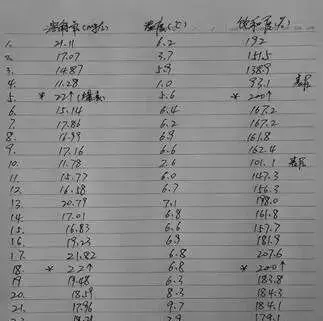 溶解氧(mg/L) 温度(℃) 饱和度(%)
1. 21.11 6.2 192
2. 17.07 3.7 151.5
3. 14.87 5.9 138.9
4. 11.28 1.0 93.1
5. * 22↑ 5.6 * 200↑
6. 15.14 6.4 167.2
7. 17.86 6.2 167.2
8. 16.99 6.9 161.8
9. 17.16 6.6 162.4
10. 11.78 2.6 101.1
11. 15.77 6.0 147.3
12. 16.58 6.7 156.3
13. 20.79 7.1 198.0
14. 17.01 6.8 161.8
15. 16.83 6.6 157.7
16. 19.23 6.9 181.9
17. 21.82 6.8 207.6
18. * 22↑ 6.8 * 200↑
19. 19.48 6.3 183.8
20. 18.59 8.3 184.3
21. 17.96 9.7 184.1